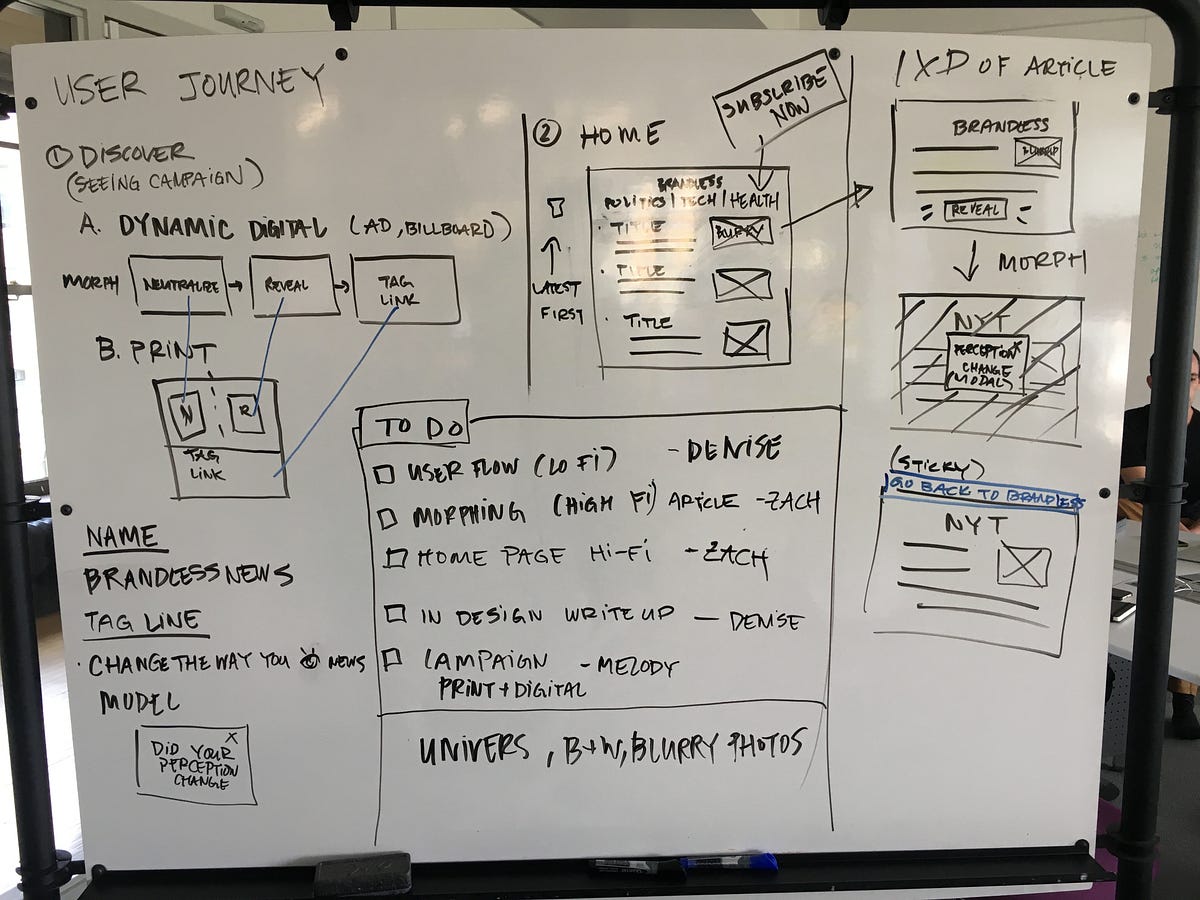 USER JOURNEY
① DISCOVER
(SEEING CAMPAIGN)
A. DYNAMIC DIGITAL (AD, BILLBOARD)
MORPH
NEUTRALIZE
REVEAL
TAG
LINK
B. PRINT
N
R
TAG
LINK
NAME
BRANDLESS NEWS
TAG LINE
· CHANGE THE WAY YOU NEWS
MODEL
X
DID YOUR
PERCEPTION
CHANGE
② HOME
SUBSCRIBE
NOW
BRANDLESS
POLITICS | TECH | HEALTH
· TITLE
BLURRY
· TITLE
· TITLE
LATEST
FIRST
TO DO
USER FLOW (LO FI) - DENISE
MORPHING (HIGH FI) ARTICLE - ZACH
HOME PAGE HI-FI - ZACH
IN DESIGN WRITE UP — DENISE
CAMPAIGN - MELODY
PRINT + DIGITAL
UNIVERS, B+W, BLURRY PHOTOS
IXD OF ARTICLE
BRANDLESS
BLURRED
REVEAL
MORPH
NYT
PERCEPTION X
CHANGE
(MODAL)
(STICKY)
GO BACK TO BRANDLESS
NYT